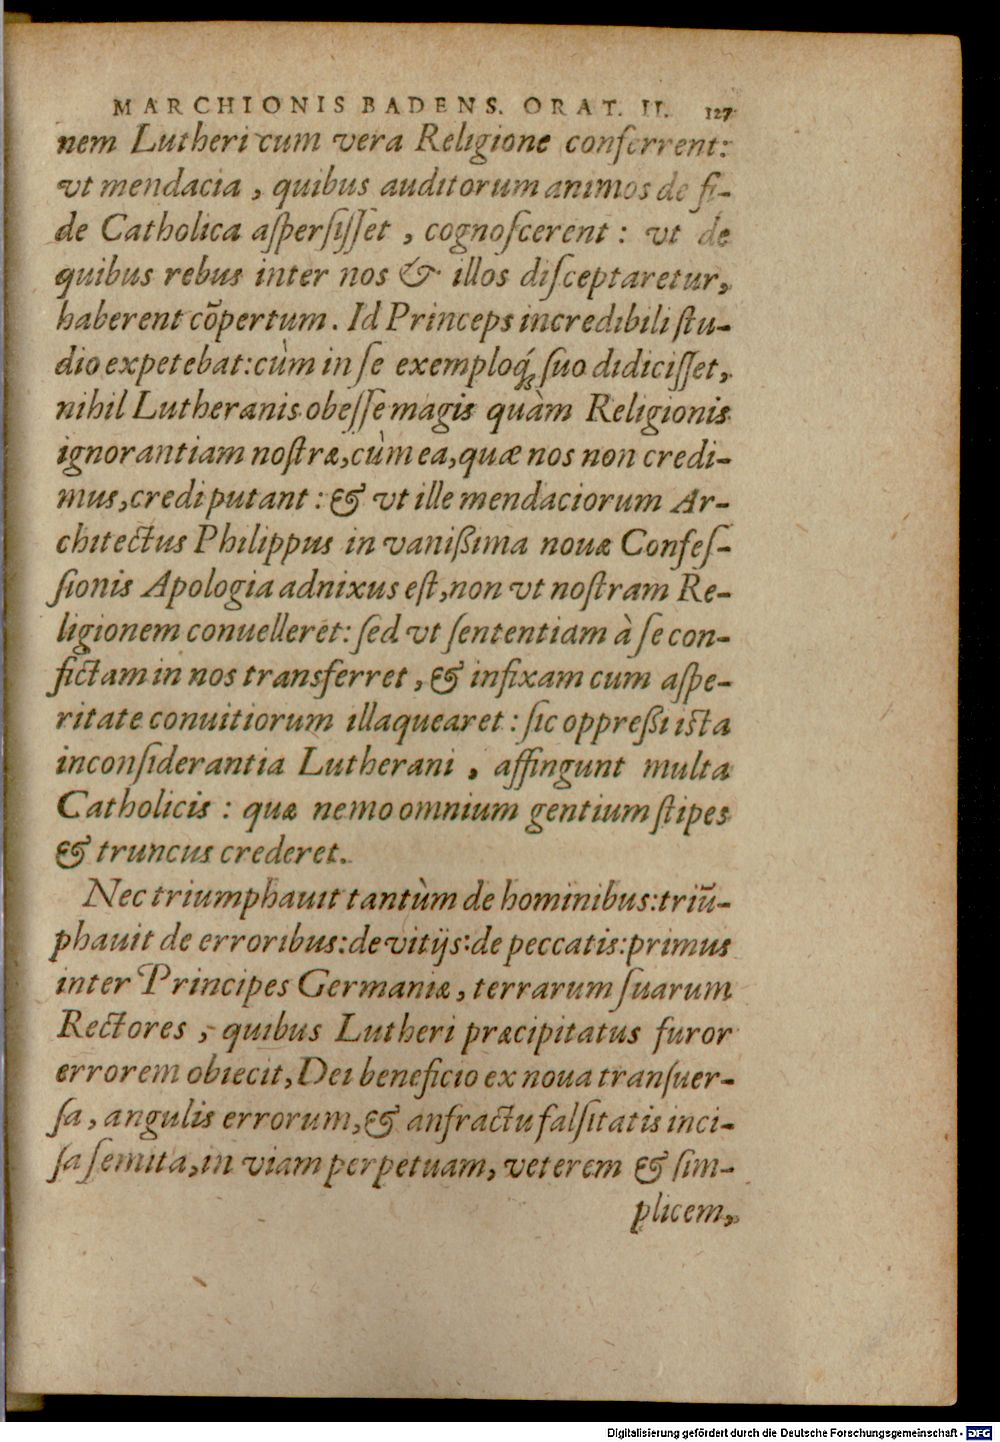 MARCHIONIS BADENS. ORAT. II. 127
nem Lutheri cum vera Religione conferrent:
vt mendacia, quibus auditorum animos de fi-
de Catholica aſperſiſſet, cognoſcerent: vt de
quibus rebus inter nos & illos diſceptaretur,
haberent cõpertum. Id Princeps incredibili ſtu-
dio expetebat: cùm in ſe exemploq́ʒ ſuo didiciſſet,
nihil Lutheranis obeſſe magis quàm Religionis
ignorantiam noſtræ, cùm ea, quæ nos non credi-
mus, credi putant: & vt ille mendaciorum Ar-
chitectus Philippus in vanißima nouæ Confeſ-
ſionis Apologia adnixus eſt, non vt noſtram Re-
ligionem conuelleret: ſed vt ſententiam à ſe con-
fictam in nos transferret, & infixam cum aſpe-
ritate conuitiorum illaquearet: ſic oppreßi iſta
inconſiderantia Lutherani, affingunt multa
Catholicis: quæ nemo omnium gentium ſtipes
& truncus crederet.
Nec triumphauit tantùm de hominibus: triũ-
phauit de erroribus: de vitijs: de peccatis: primus
inter Principes Germaniæ, terrarum ſuarum
Rectores, quibus Lutheri præcipitatus furor
errorem obiecit, Dei beneficio ex noua tranſuer-
ſa, angulis errorum, & anfractu falſitatis inci-
ſa ſemita, in viam perpetuam, veterem & ſim-
plicem,
Digitalisierung gefördert durch die Deutsche Forschungsgemeinschaft - DFG